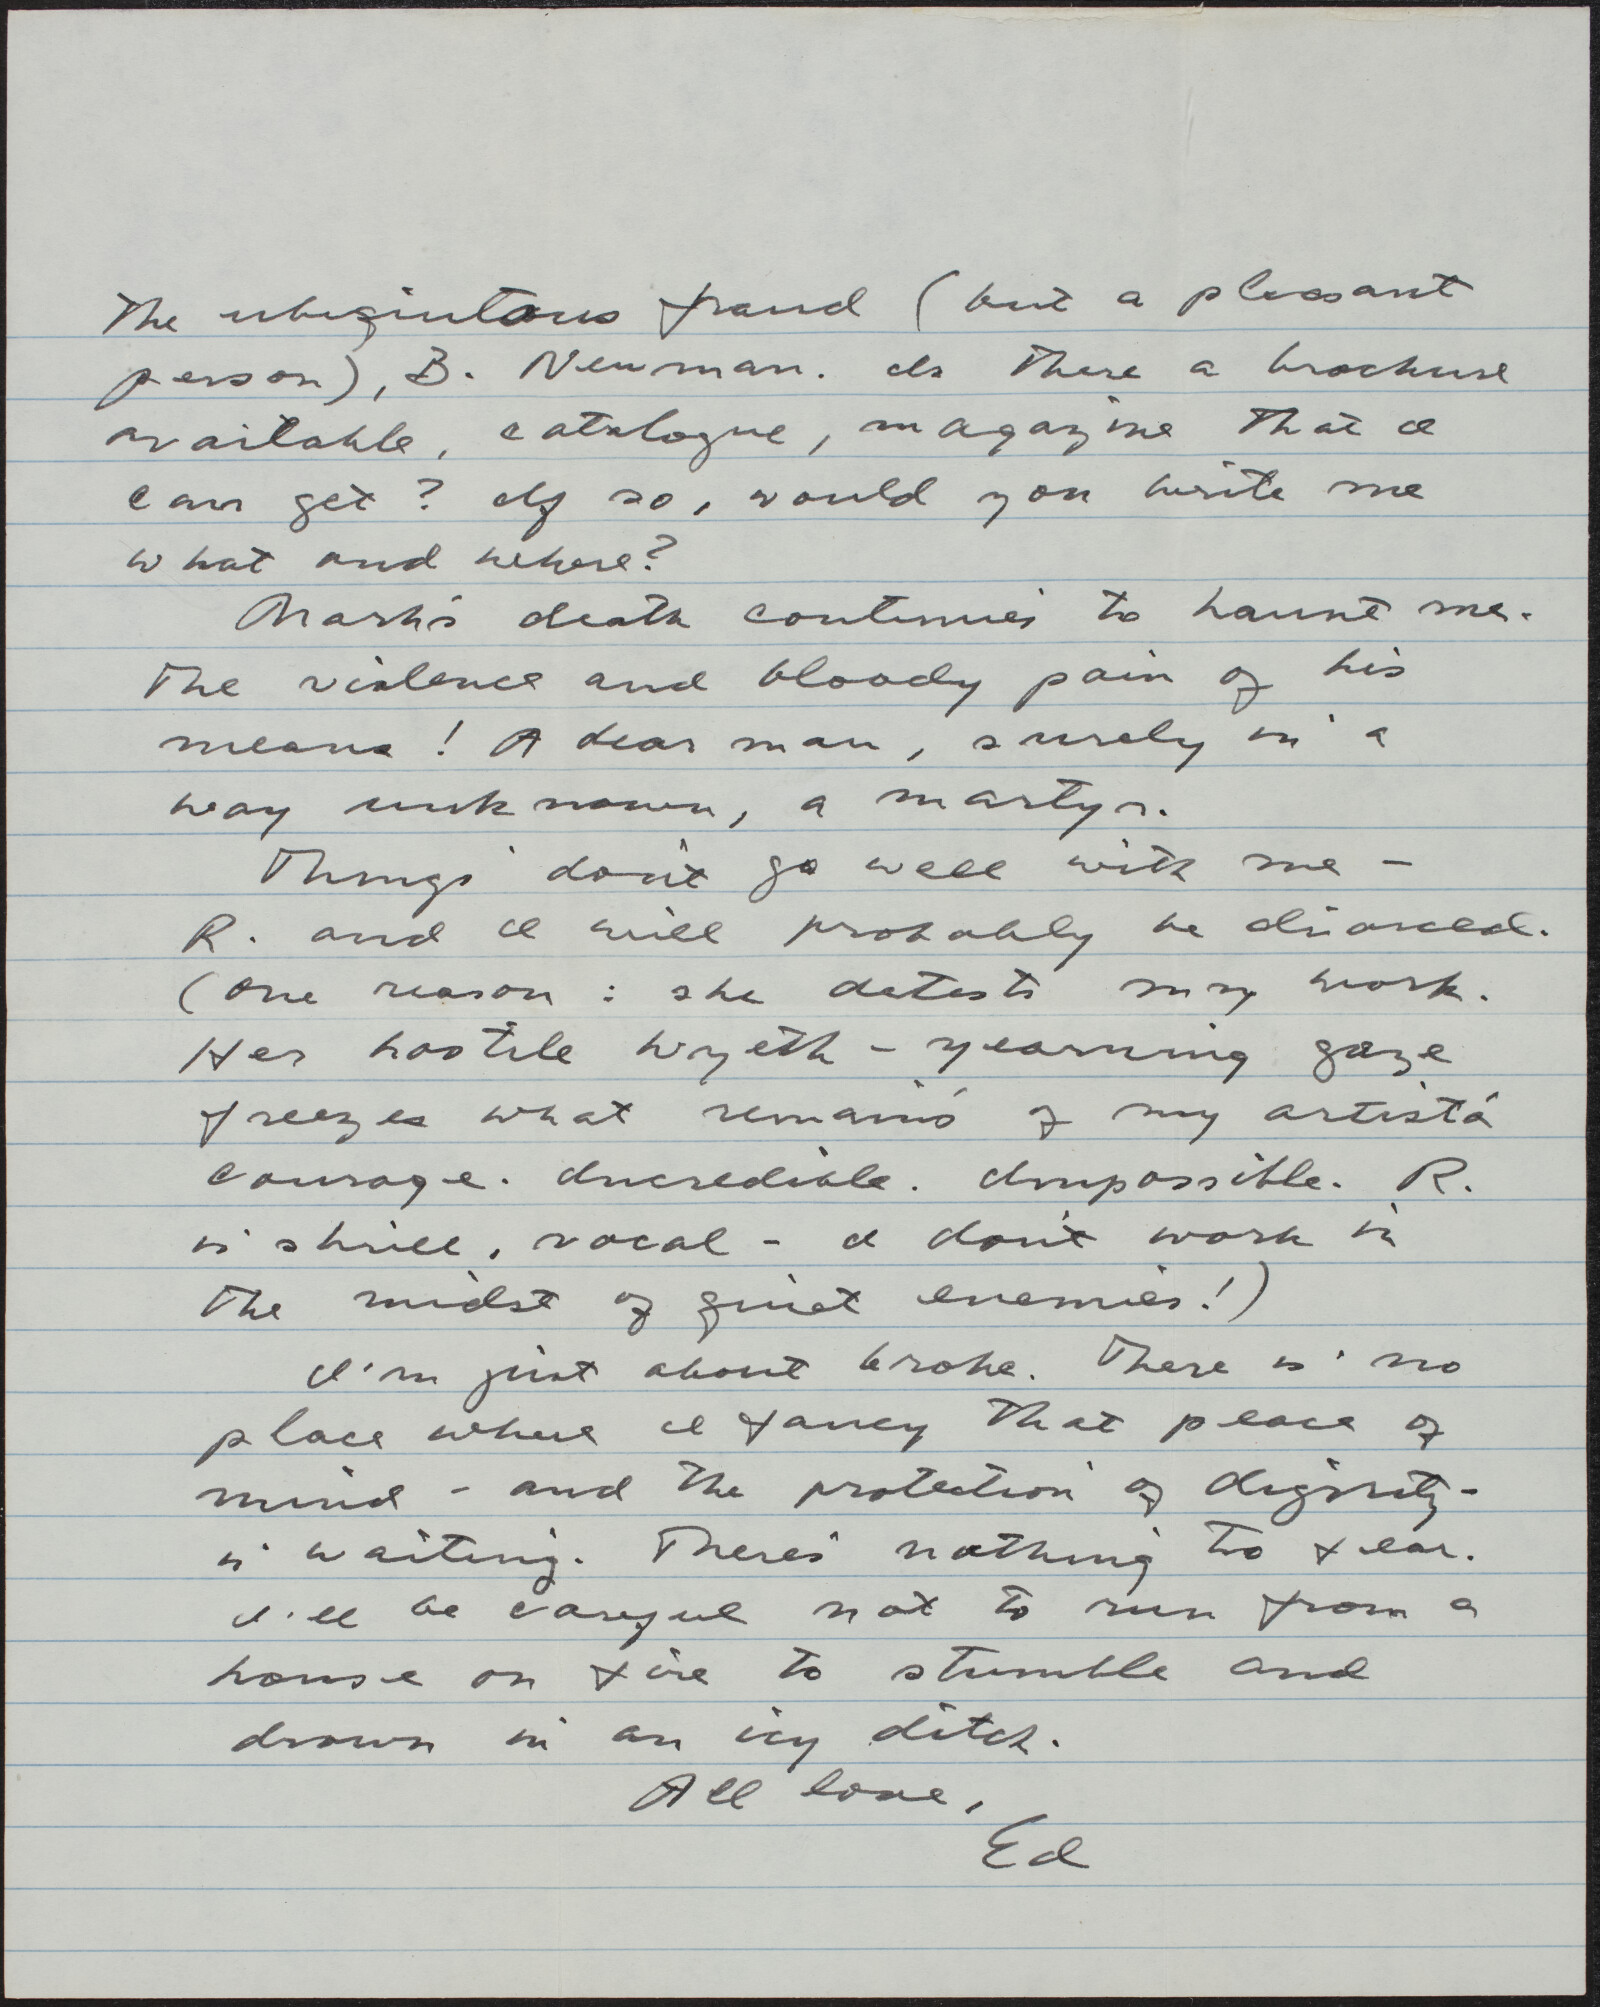 The ubiquitous fraud (but a pleasant
person), B. Newman. Is there a brochure
available, catalogue, magazine that I
can get? If so, would you write me
what and where?
Mark's death continues to haunt me.
The violence and bloody pain of his
means! A dear man, surely in a
way unknown, a martyr.
Things don't go well with me -
R. and I will probably be divorced.
(One reason: she detests my work.
Her hostile Wyeth-yearning gaze
freezes what remains of my artist's
courage. Incredible. Impossible. R.
is shrill, vocal - I don't work in
the midst of quiet enemies!)
I'm just about broke. There is no
place where I fancy that peace of
mind - and the protection of dignity -
is waiting. There's nothing to fear.
I'll be careful not to run from a
house on fire to stumble and
drown in an icy ditch.
All love,
Ed